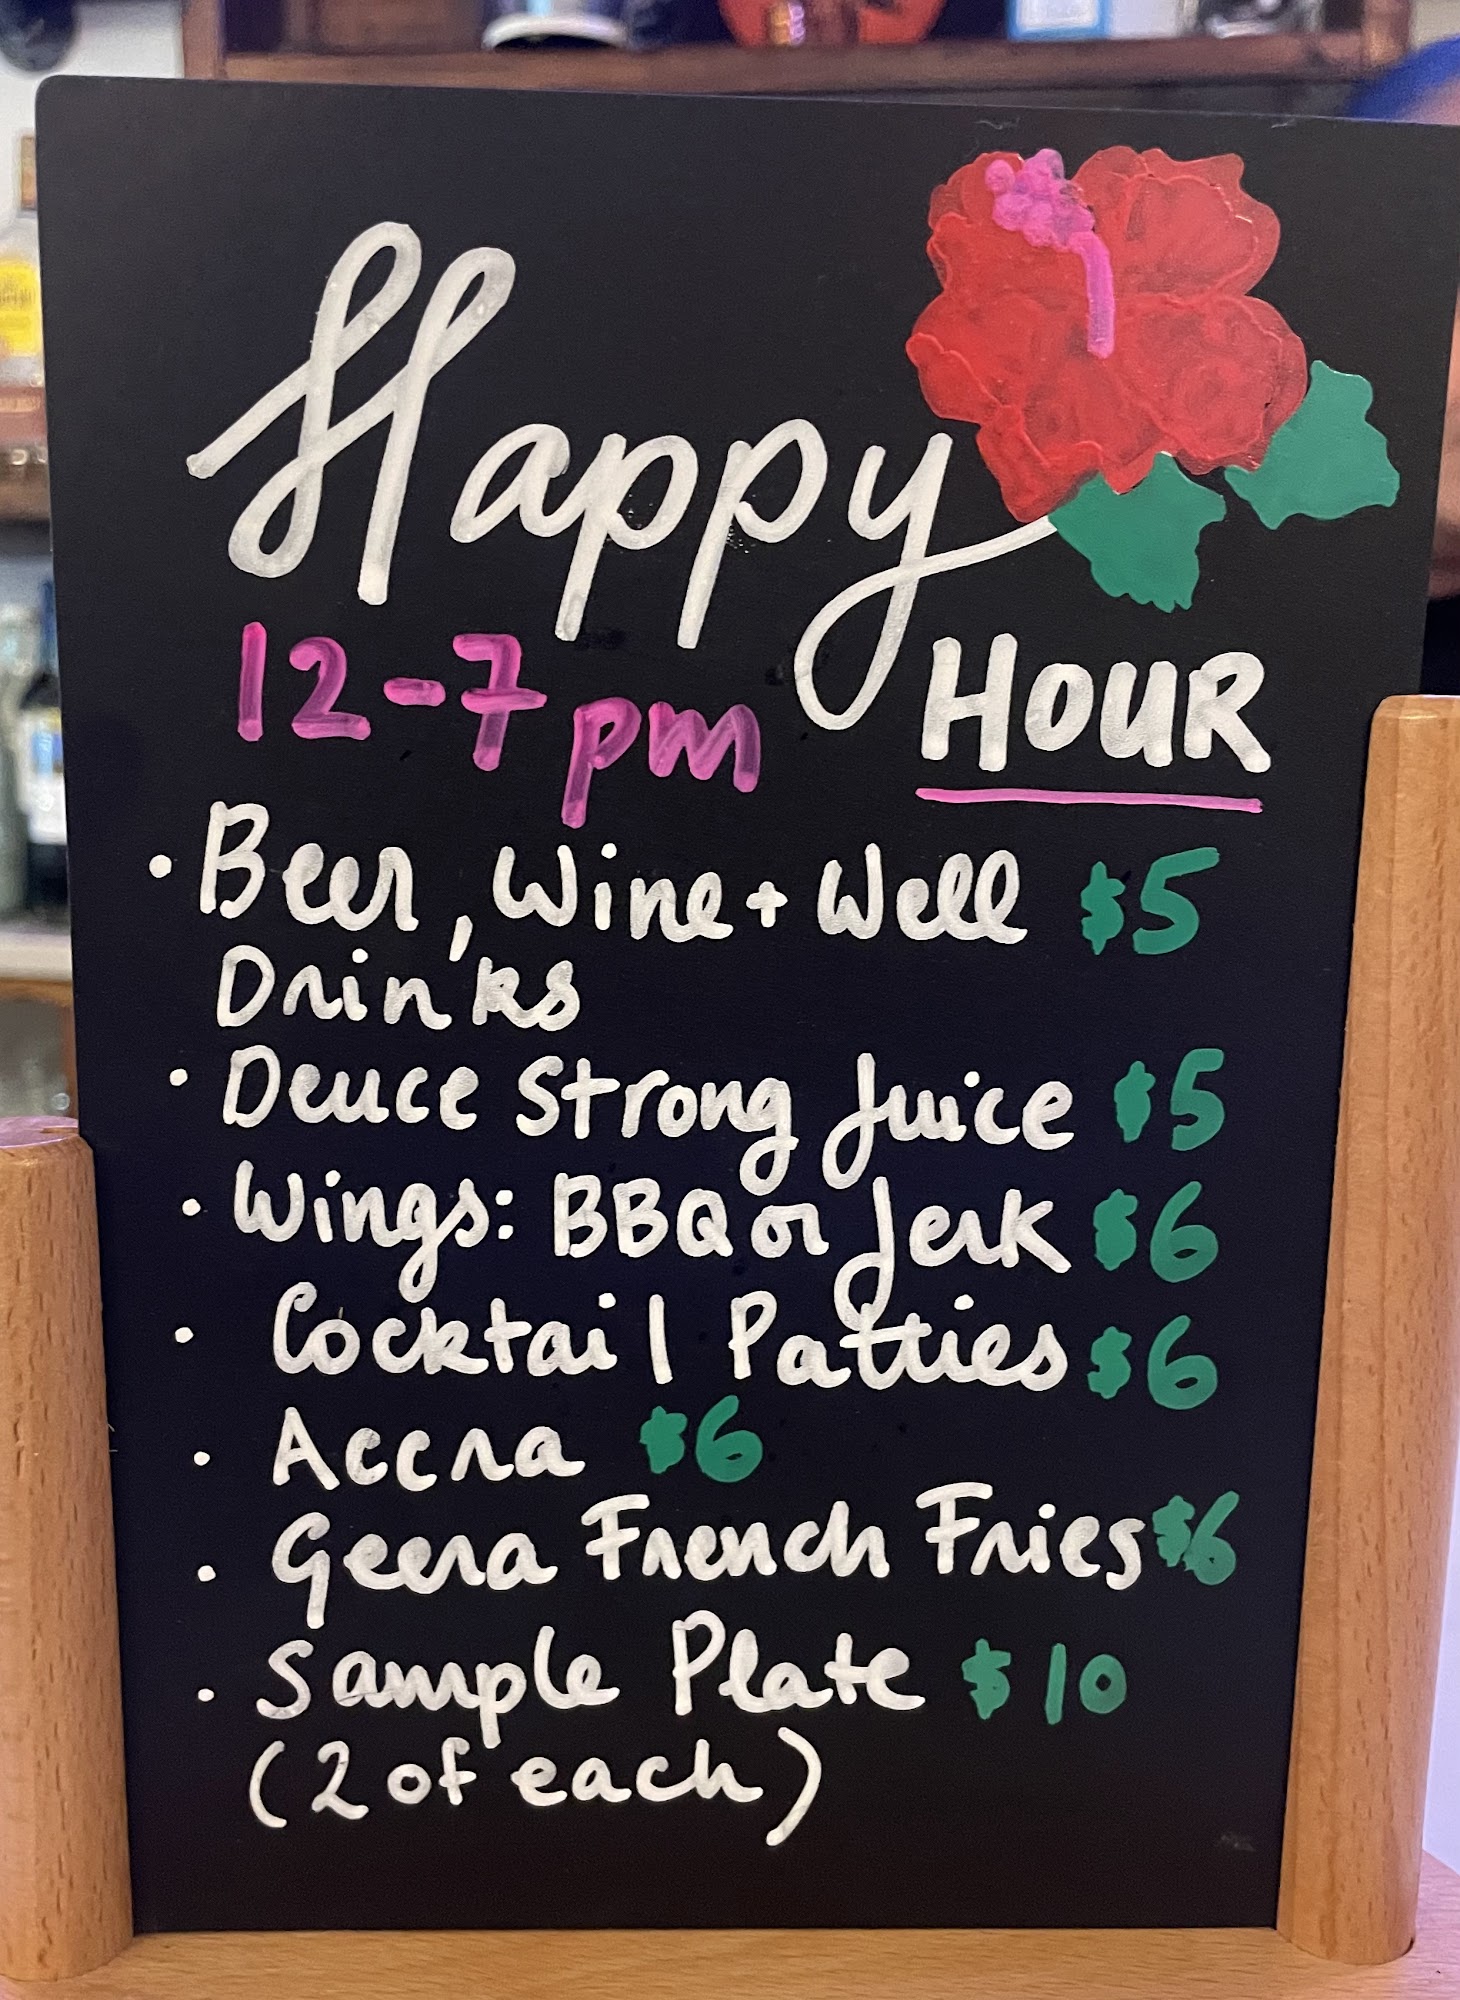 Happy
12-7pm HOUR
• Beer, Wine + Well $5
Drinks
• Deuce Strong Juice $5
• Wings: BBQ or Jerk $6
• Cocktail Patties $6
• Accra $6
• Geera French Fries $6
• Sample Plate $10
(2 of each)